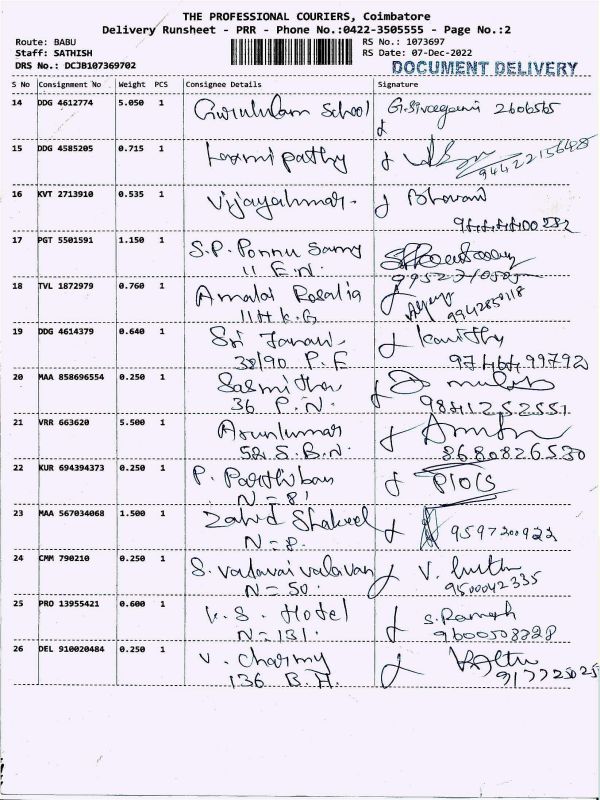 THE PROFESSIONAL COURIERS, Coimbatore
Delivery Runsheet - PRR - Phone No.:0422-3505555 - Page No.:2
Route: BABU
RS No.: 1073697
Staff: SATHISH
RS Date: 07-Dec-2022
DRS No.: DCJB107369702
DOCUMENT DELIVERY
S No Consignment No Weight PCS Consignee Details Signature
14 DDG 4612774 5.050 1 School G.Sivagami 2606565
15 DDG 4585205 0.715 1 Laxmipathy 9442215642
16 KVT 2713910 0.535 1 Vijayakumar- Bhavani
17 PGT 5501591 1.150 1 S.P. Ponnu Samy
11 E.N.
18 TVL 1872979 0.760 1 Amalai Rosalia 9942850118
11 H K.G
19 DDG 4614379 0.640 1 Sri
38/90 P.E
20 MAA 858696554 0.250 1 Sasmitha
36 P.N. 9841252551
21 VRR 663620 5.500 1 Arunkumar
S.B.N. 8680826530
22 KUR 694394373 0.250 1 P. Parthiban
N = 81
23 MAA 567034068 1.500 1 Zahid Shakeel 9597200922
N = 8.
24 CMM 790210 0.250 1 S. Vadavaivalavan V.
N = 50. 9500042335
25 PRO 13955421 0.600 1 K.S. Hotel S.Ramesh
N = 131. 9600508828
26 DEL 910020484 0.250 1 V. Charmy
136 B.H.